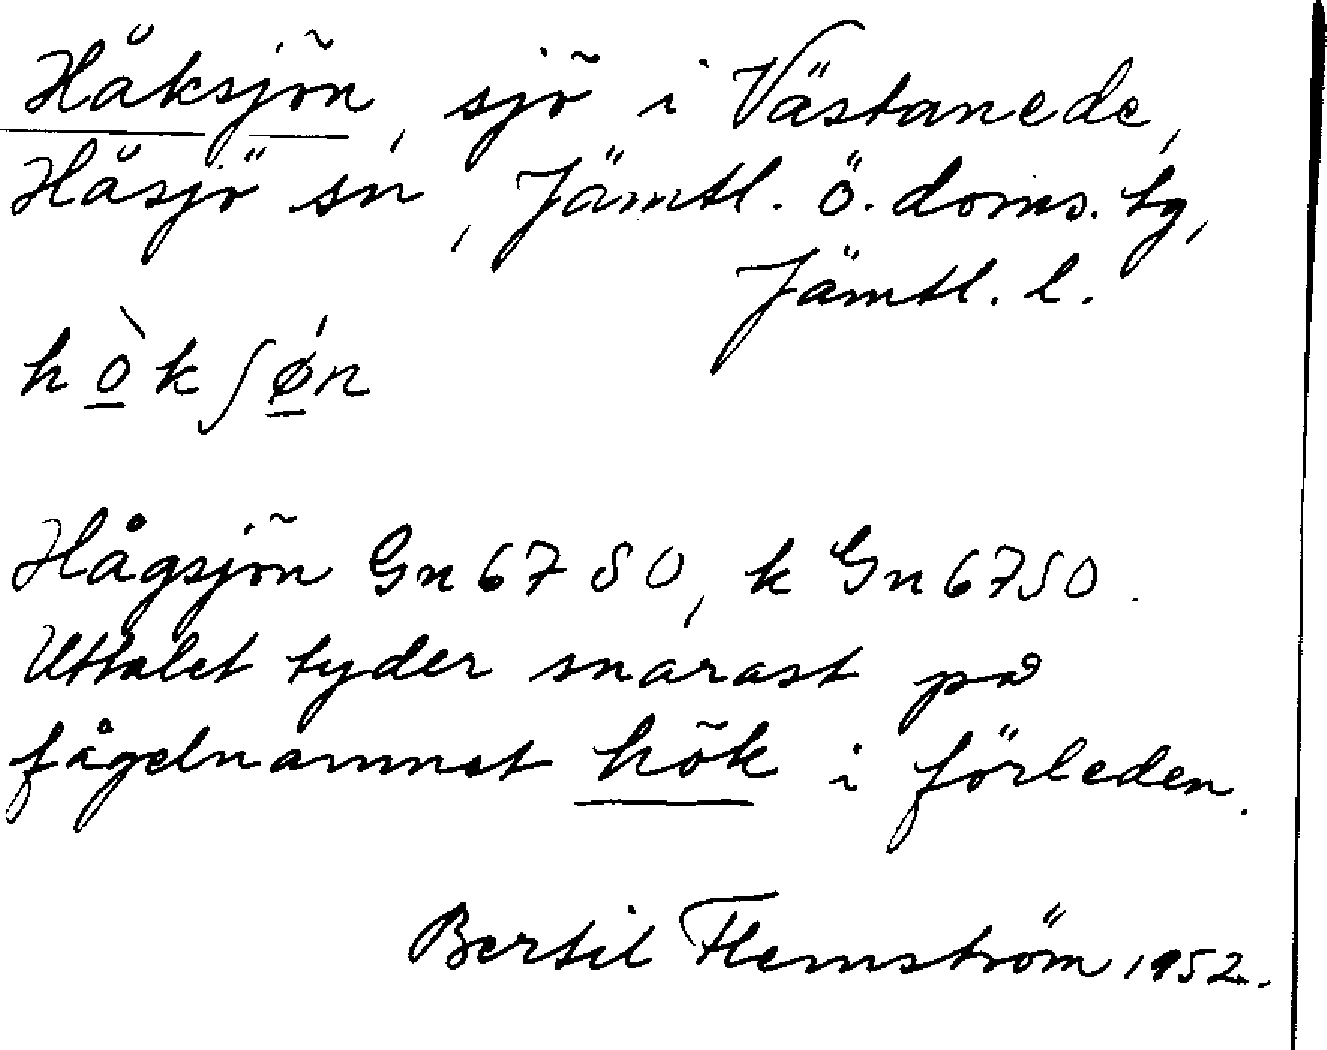 Håksjön, sjö i Västanede,
Håsjö sn, Jämtl. ö. doms. tg,
Jämtl. l.
hò̱kʃǿ̱n
Hågsjön Gn 67 SO, k Gn 67 SO.
Uttalet tyder snarast på
fågelnamnet hök i förleden.
Bertil Flemström 1952.